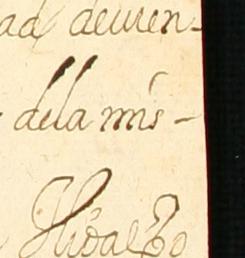 ad deuien-
dela mis-
Hidalgo